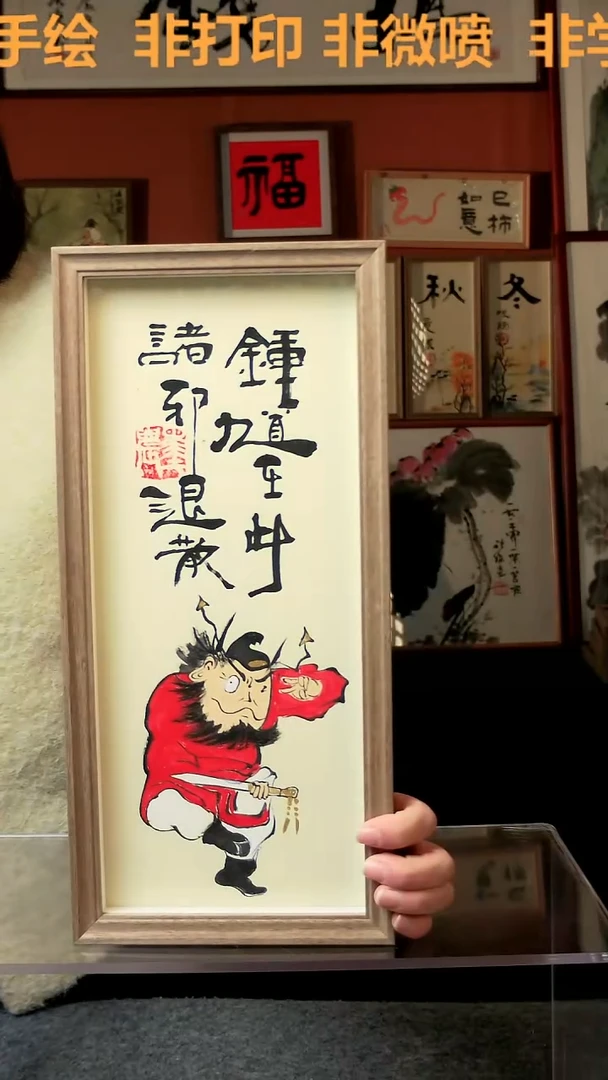 手绘 非打印 非微喷 非学
福
巳柿
如意
秋
冬
鍾馗在此
諸邪退散